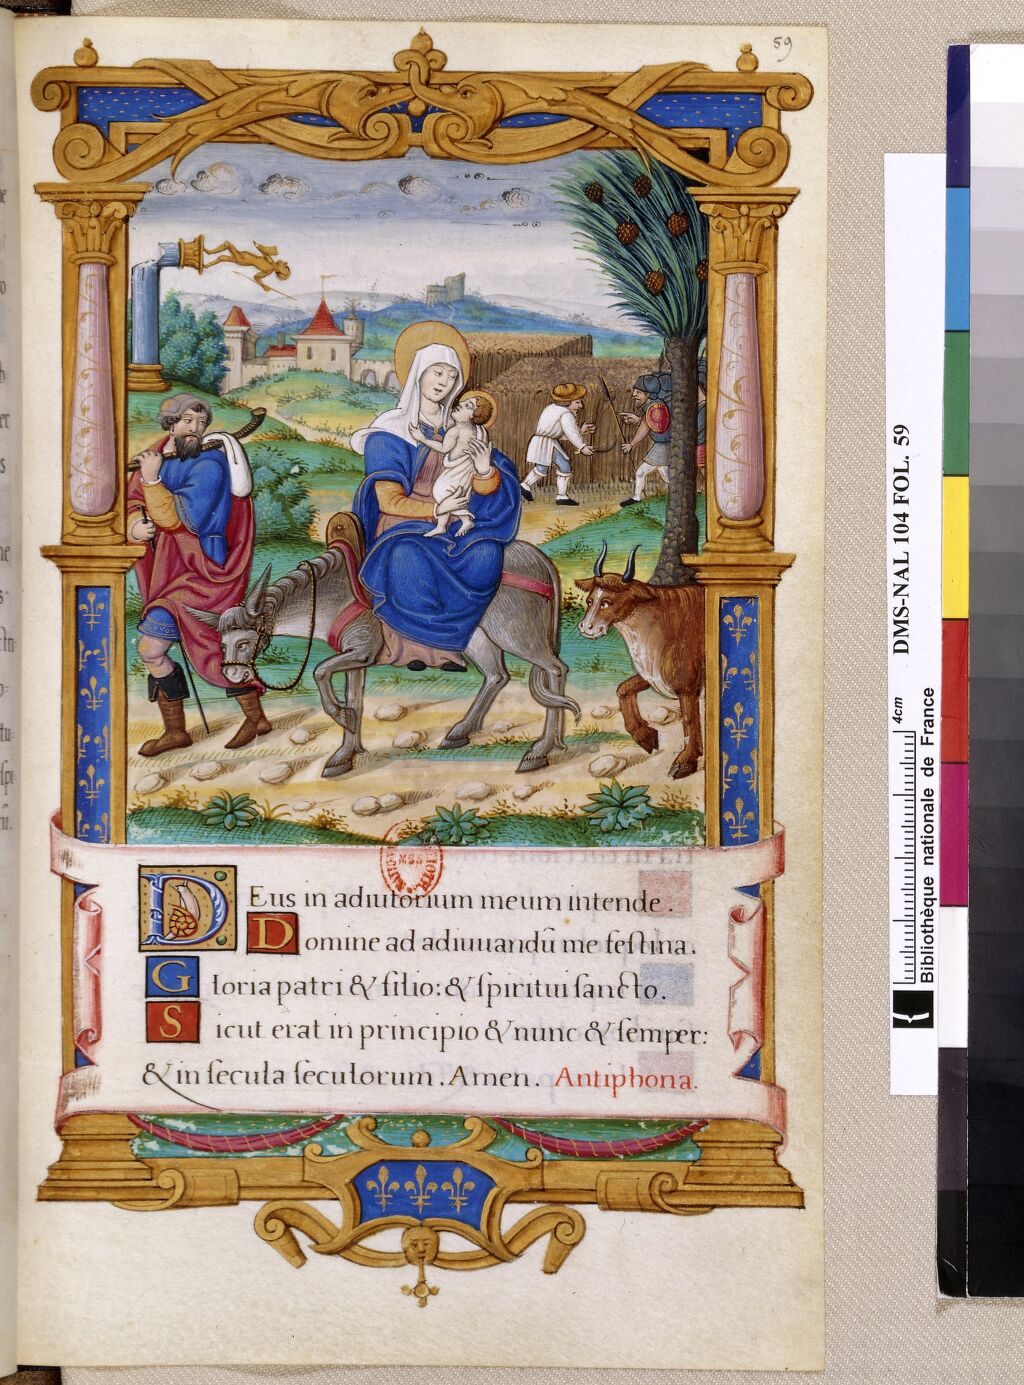 59
Deus in adiutorium meum intende.
Domine ad adiuuandū me feſtina.
Gloria patri & filio: & ſpiritui ſancto.
Sicut erat in principio & nunc & ſemper:
& in ſecula ſeculorum. Amen. Antiphona.
MSS
DMS-NAL 104 FOL. 59
4cm
Bibliothèque nationale de France